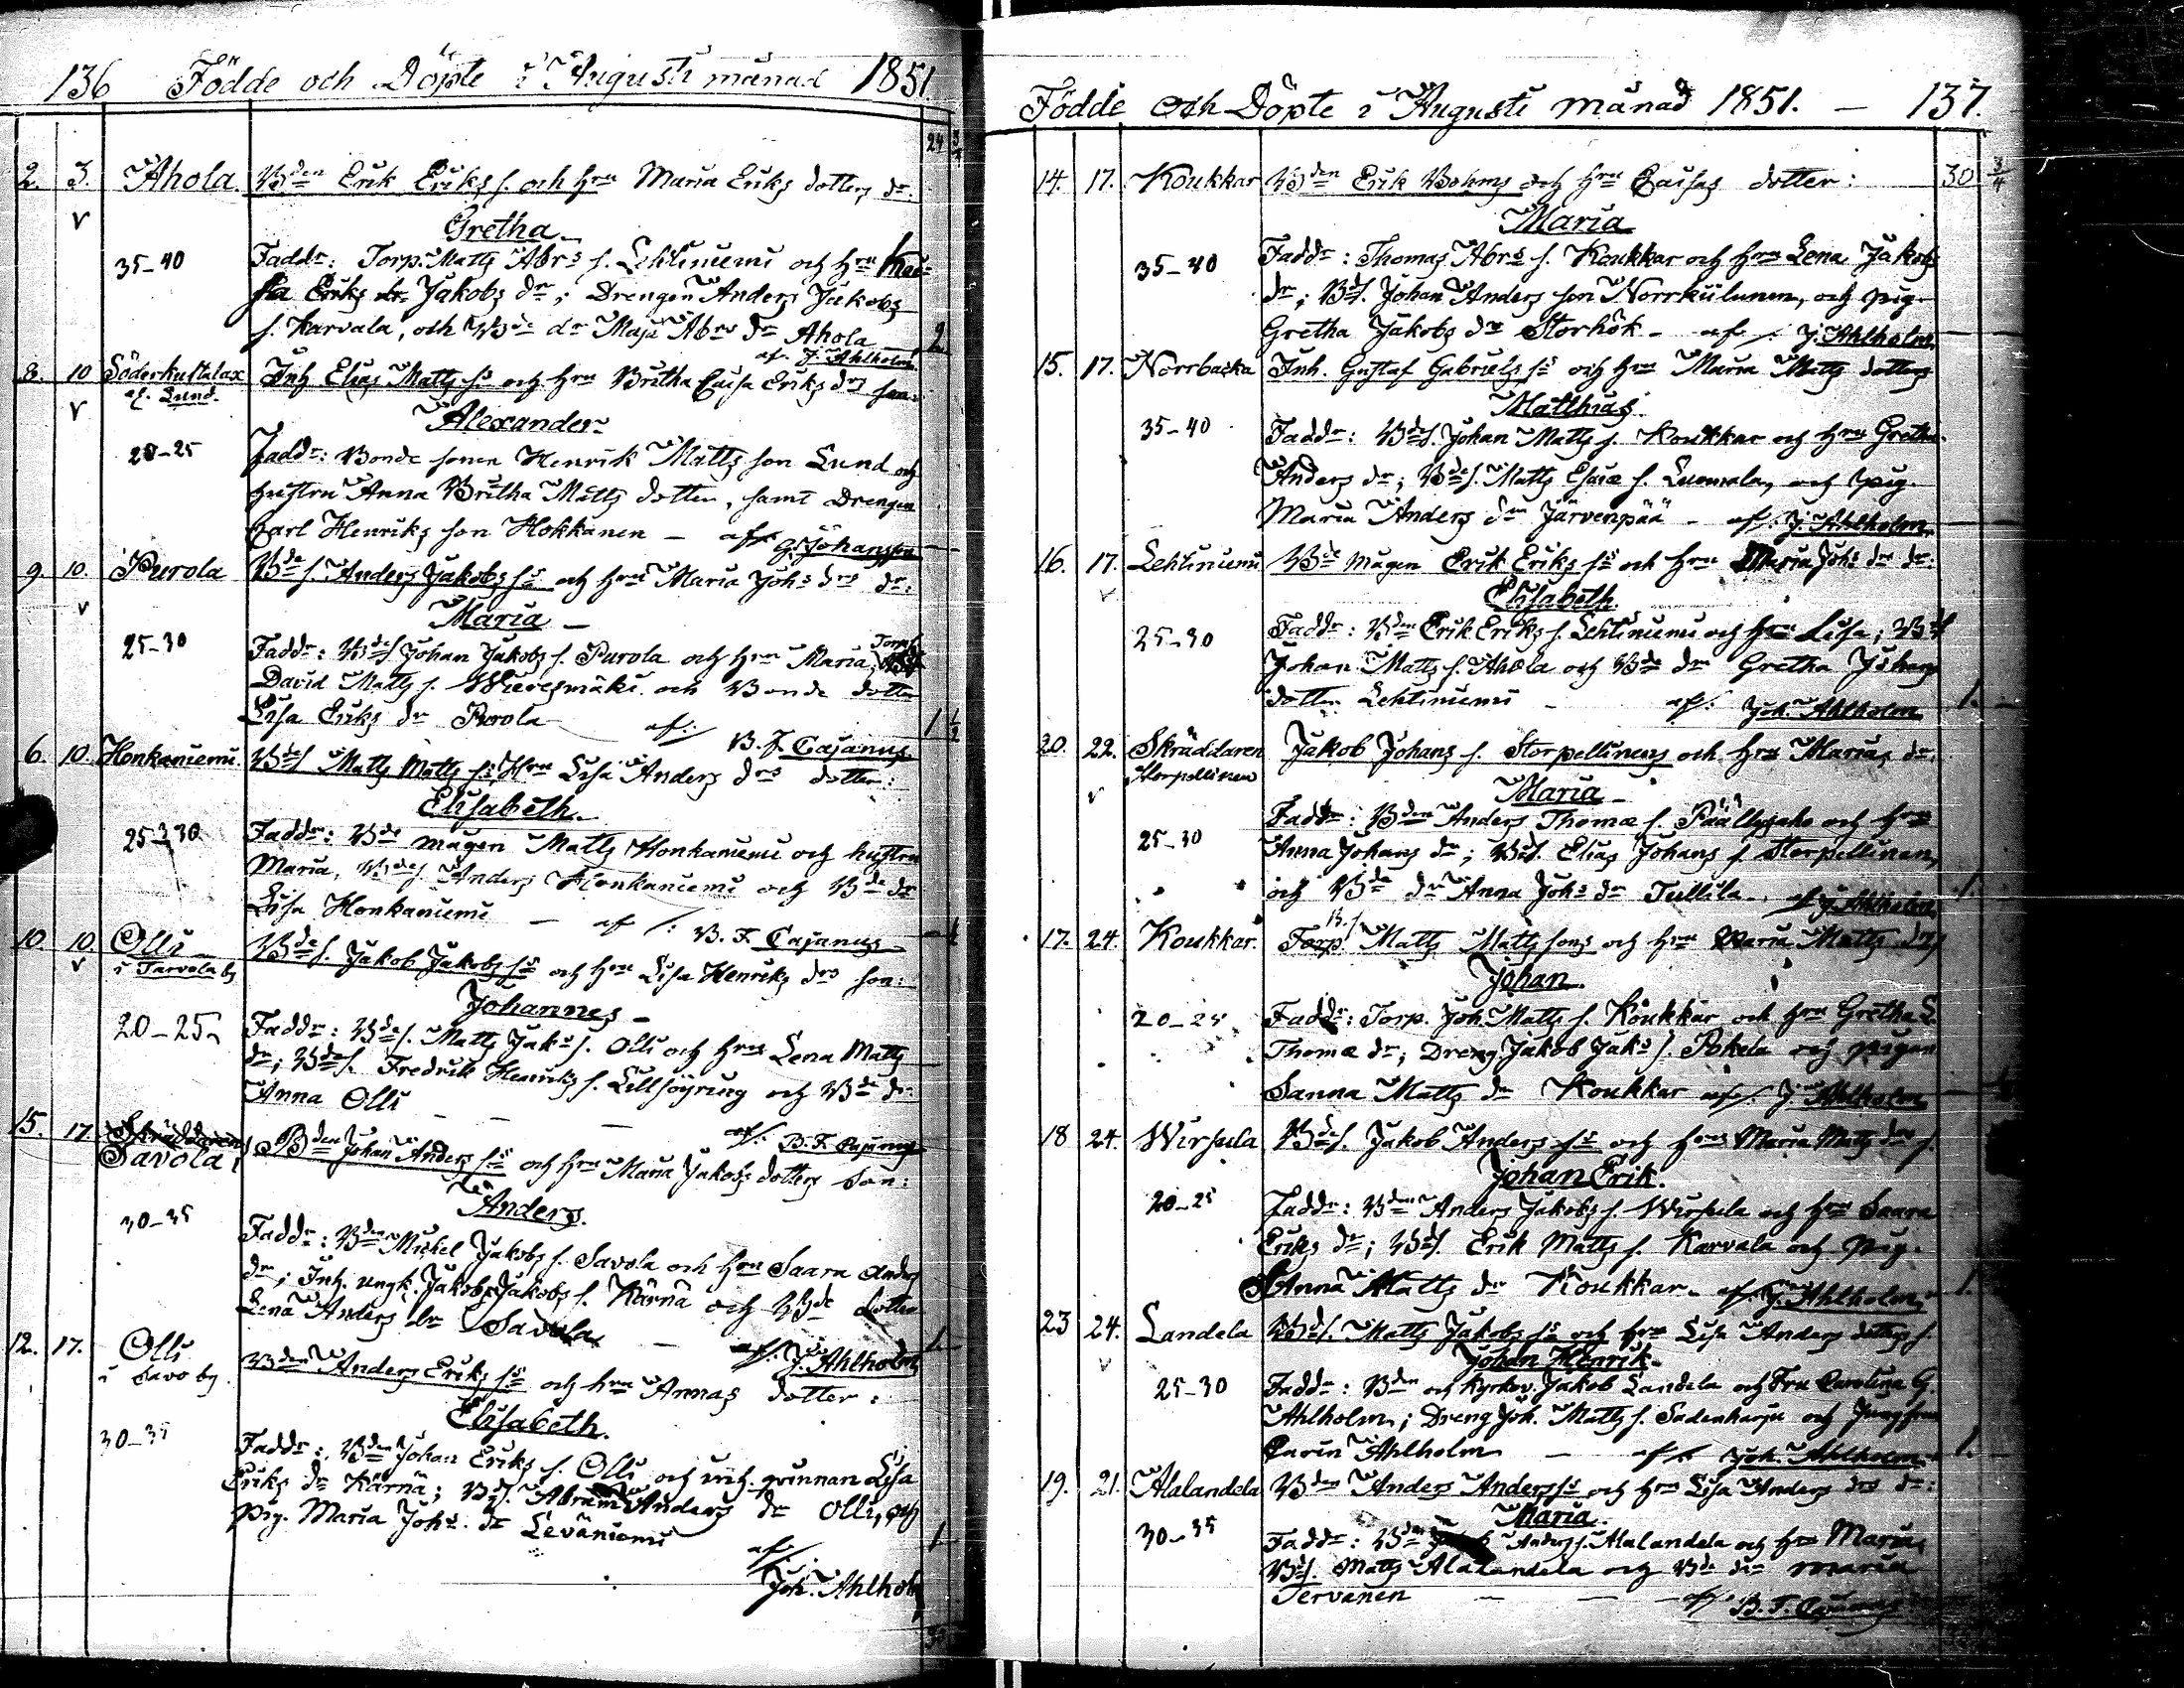 136 Födde och Döpte i Augusti månad 1851.
24 3/4
2. 3. Ahola. Bden Erik Eriks s. och Hru Maria Eriks dotters dr:
Gretha
35-40 Faddr: Torp. Matts Abrs s. Lehtiniemi och Hru
Eriks dr Jakobs dr; Drengen Anders Jakobs
s. Karvala, och Bde dr Maja Abrs dr Ahola 2
af J. Ahlholm
8. 10 Söderkultalax Inh Elias Matts ss och Hru Britha Caisa Eriks drs son:
af. Lund.
Alexander
20-25 Faddr: Bonde sonen Henrik Matts son Lund och
hustru Anna Britha Matts dotter, samt Drengen
Carl Henriks son Hokkanen - af G. Johansson
9. 10. Purola Bde s. Anders Jakobs ss och Hru Maria Johs drs dr:
Maria
25-30 Faddr: Bdes Johan Jakobs s. Purola och Hru Maria, Torp
David Matts s. Wieresmäki och Bonde dotter
Lisa Eriks dr Purola af: 1 1/2
B. F. Cajanus
6. 10. Honkaniemi. Bdes Matts Matts ss, Hru Lisa Anders drs dotter:
Elisabeth.
25-30 Faddr: Bde mågen Matts Honkaniemi och hustru
Maria, Bdes. Anders Honkaniemi och Bde dr
Lisa Honkaniemi - af
B. F. Cajanus
10. 10. Olli Bdes. Jakob Jakobs ss och Hru Lisa Henriks drs son:
i Tarvola by
Johannes
20-25 Faddr: Bdes. Matts Jaks s. Olli och Hru Lena Matts
dr; Bdes. Fredrik Henriks s. Lillsöyring och Bde dr
Anna Olli
af: B. F. Cajanus
15. 17. Skräddaren
Savola, Bden Johan Anders ss och Hru Maria Jakobs dotters son:
Anders.
30-35 Faddr: Bden Mickel Jakobs s. Savola och Hru Saara Anders
dr; Inh. ungk. Jakob Jakobs s. Kärnä och Bde dotter
Lena Anders dr Savola 1
af. J. Ahlholm
12. 17. Olli Bden Anders Eriks ss och hru Annas dotter:
i Savo by.
Elisabeth.
30-35 Faddr: Bden Johan Eriks s. Olli och inh. qvinnan Lisa
Eriks dr Kärnä; Bds. Abram Anders dr Olli, och
pig. Maria Johs. dr Leväniemi 1
af.
Joh. Ahlholm
Födde och Döpte i Augusti månad 1851. - 137.
14. 17. Koukkar Bden Erik Bohms och Hru Caisas dotter: 30 3/4
Maria
35-40 Faddr: Thomas Abrs s. Koukkar och Hru Lena Jakobs
dr; Bds. Johan Anders son Norrkiilunen, och pig.
Gretha Jakobs dr Storhök - af. J. Ahlholm
15. 17. Norrbacka Inh. Gustaf Gabriels ss och Hru Maria Matts dotters
Matthias
35-40 Faddr: Bdes. Johan Matts s. Koukkar och Hru Gretha
Anders dr; Bdes. Matts Esaiæ s. Luomala, och pig.
Maria Anders dr Järvenpää - af. J. Ahlholm
16. 17. Lehtiniemi Bde mågen Erik Eriks ss och Hru Maria Johs drs dr:
Elisabeth.
25-30 Faddr: Bden Erik Eriks s. Lehtiniemi och Hru Lisa; Bds
Johan Matts s. Ahola och Bde dr Gretha Johans
dotter Lehtiniemi - af. Joh. Ahlholm 1.
20. 22. Skräddaren Jakob Johans s. Storpellinens och Hru Marias dr:
Storpellinen
Maria
25-30 Faddr: Bden Anders Thomæ s. Päällysaho och Hru
Anna Johans dr; Bds. Elias Johans s. Storpellinen,
och Bde dr Anna Johs dr Tullila. af J. Ahlholm 1.
17. 24. Koukkar. Torp. B.s. Matts Matts sons och Hru Maria Matts drs
Johan
20-25 Faddr: Torp. Joh. Matts s. Koukkar och Hru Gretha L.
Thomæ dr; Dreng. Jakob Jaks s. Pokela och pigan
Sanna Matts dr Koukkar af. J. Ahlholm
18 24. Wirsula Bdes. Jakob Anders ss och Hru Maria Matts drs s.
Johan Erik.
20-25 Faddr: Bden Anders Jakobs s. Wirsula och Hru Saara
Eriks dr; Bds. Erik Matts s. Karvala och pig.
Sanna Matts dr Koukkar - af. J. Ahlholm 1.
23 24. Landela Bds. Matts Jakobs ss och Hru Lisa Anders dotters s.
Johan Henrik
25-30 Faddr: Bden och Kyrkov. Jakob Landela och Fru Carolina G.
Ahlholm; Dreng Joh. Matts s. Sadenharju och Jungfrun
Carin Ahlholm - af. Joh. Ahlholm 1.
19. 21. Alalandela Bden Anders Anders ss och Hru Lisa Anders drs dr:
Maria.
30-35 Faddr: Bden Anders s. Alalandela och Hru Maria,
Bds. Matts Alalandela och Bde dr Maria
Tervanen - af. B. F. Cajanus